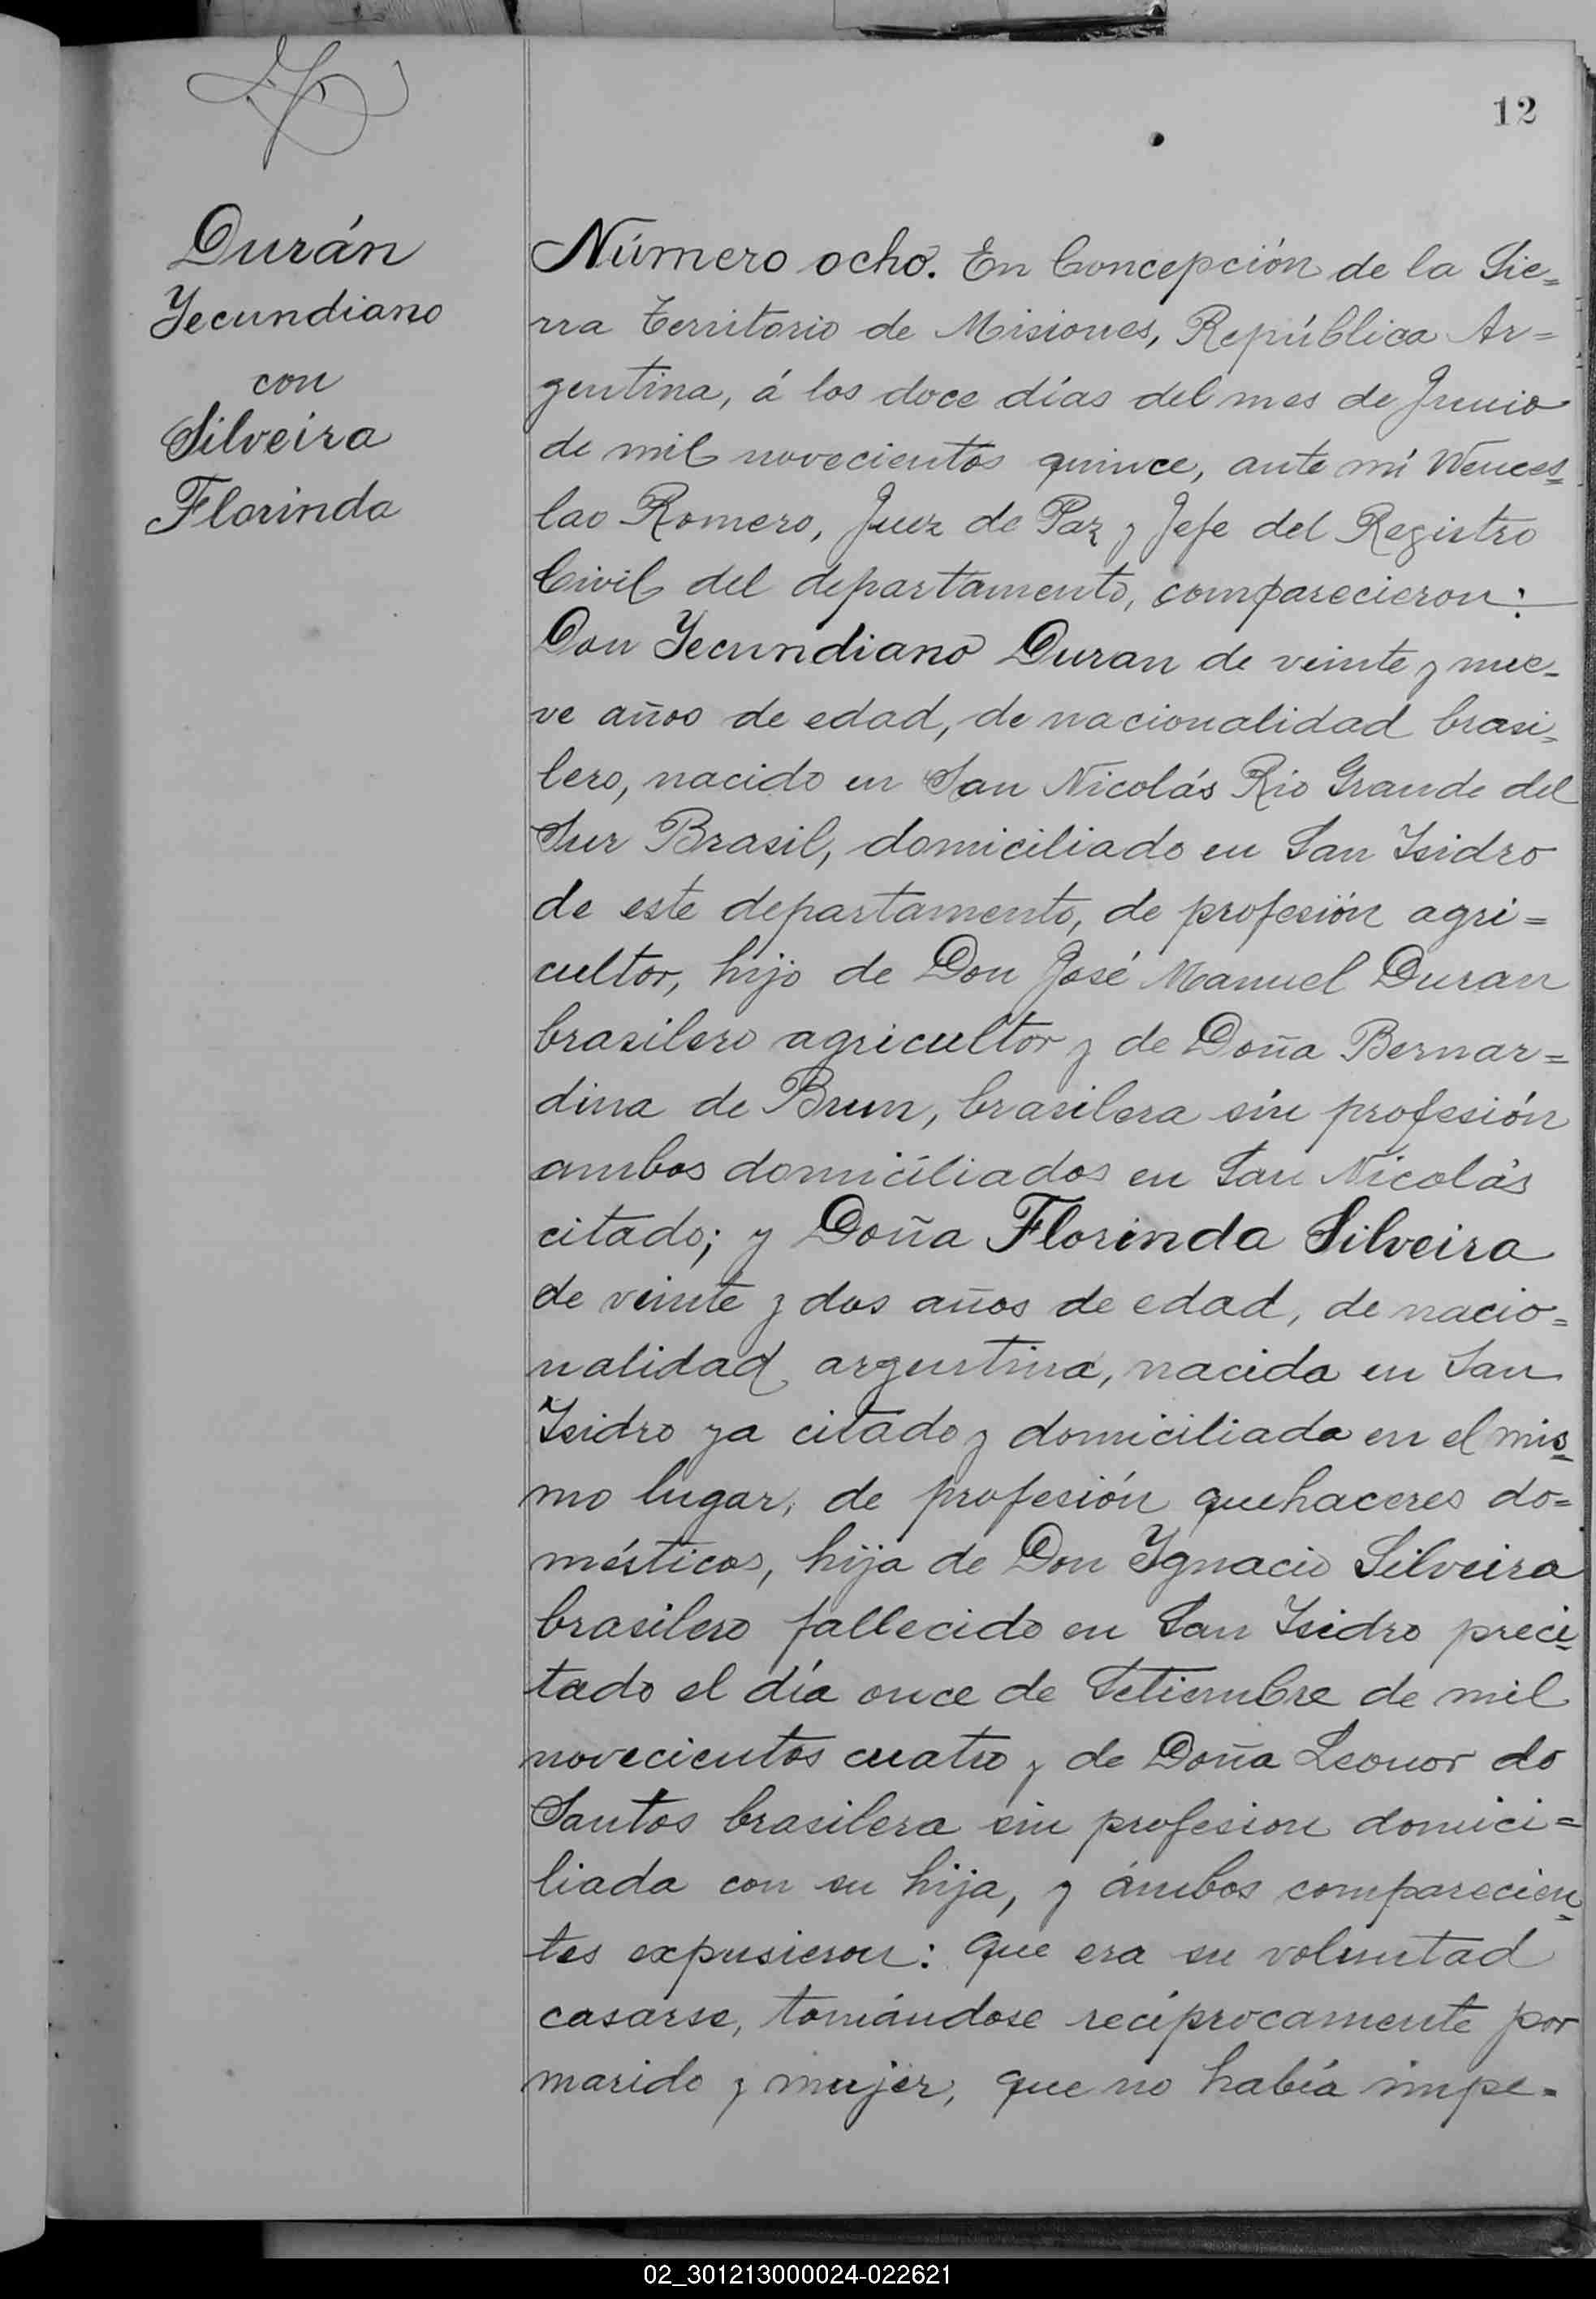 12
Durán
Yecundiano
con
Silveira
Florinda
Número ocho. En Concepción de la Sie=
rra Territorio de Misiones, República Ar=
gentina, á los doce días del mes de Junio
de mil novecientos quince, ante mí Wences=
lao Romero, Juez de Paz y Jefe del Registro
Civil del departamento, comparecieron:
Don Yecundiano Duran de veinte y nue=
ve años de edad, de nacionalidad brasi=
lero, nacido en San Nicolás Rio Grande del
Sur Brasil, domiciliado en San Isidro
de este departamento, de profesión agri=
cultor, hijo de Don José Manuel Duran
brasilero agricultor y de Doña Bernar=
dina de Brun, brasilera sin profesión
ambos domiciliados en San Nicolás
citado; y Doña Florinda Silveira
de veinte y dos años de edad, de nacio=
nalidad argentina, nacida en San
Isidro ya citado y domiciliada en el mis=
mo lugar, de profesión quehaceres do=
mésticos, hija de Don Ygnacio Silveira
brasilero fallecido en San Isidro preci=
tado el día once de Setiembre de mil
novecientos cuatro y de Doña Leonor do
Santos brasilera sin profesion domici=
liada con su hija, y ámbos comparecien=
tes expusieron: que era su voluntad
casarse, tomándose recíprocamente por
marido y mujer, que no había impe=
02_301213000024-022621